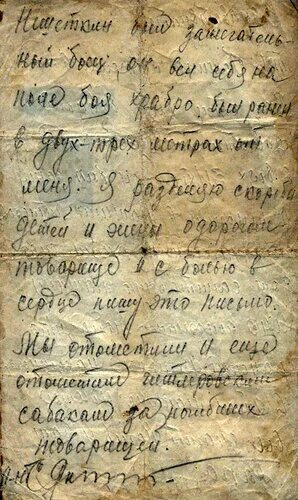 был зажигатель-
ный боец, он вел себя на
поле боя храбро, был ранен
в двух-трех метрах от
меня. Я разделяю скорбь
детей и жены о дорогом
товарище и с болью в
сердце пишу это письмо.
Мы отомстили и еще
отомстим гитлеровским
собакам за погибших
товарищей.